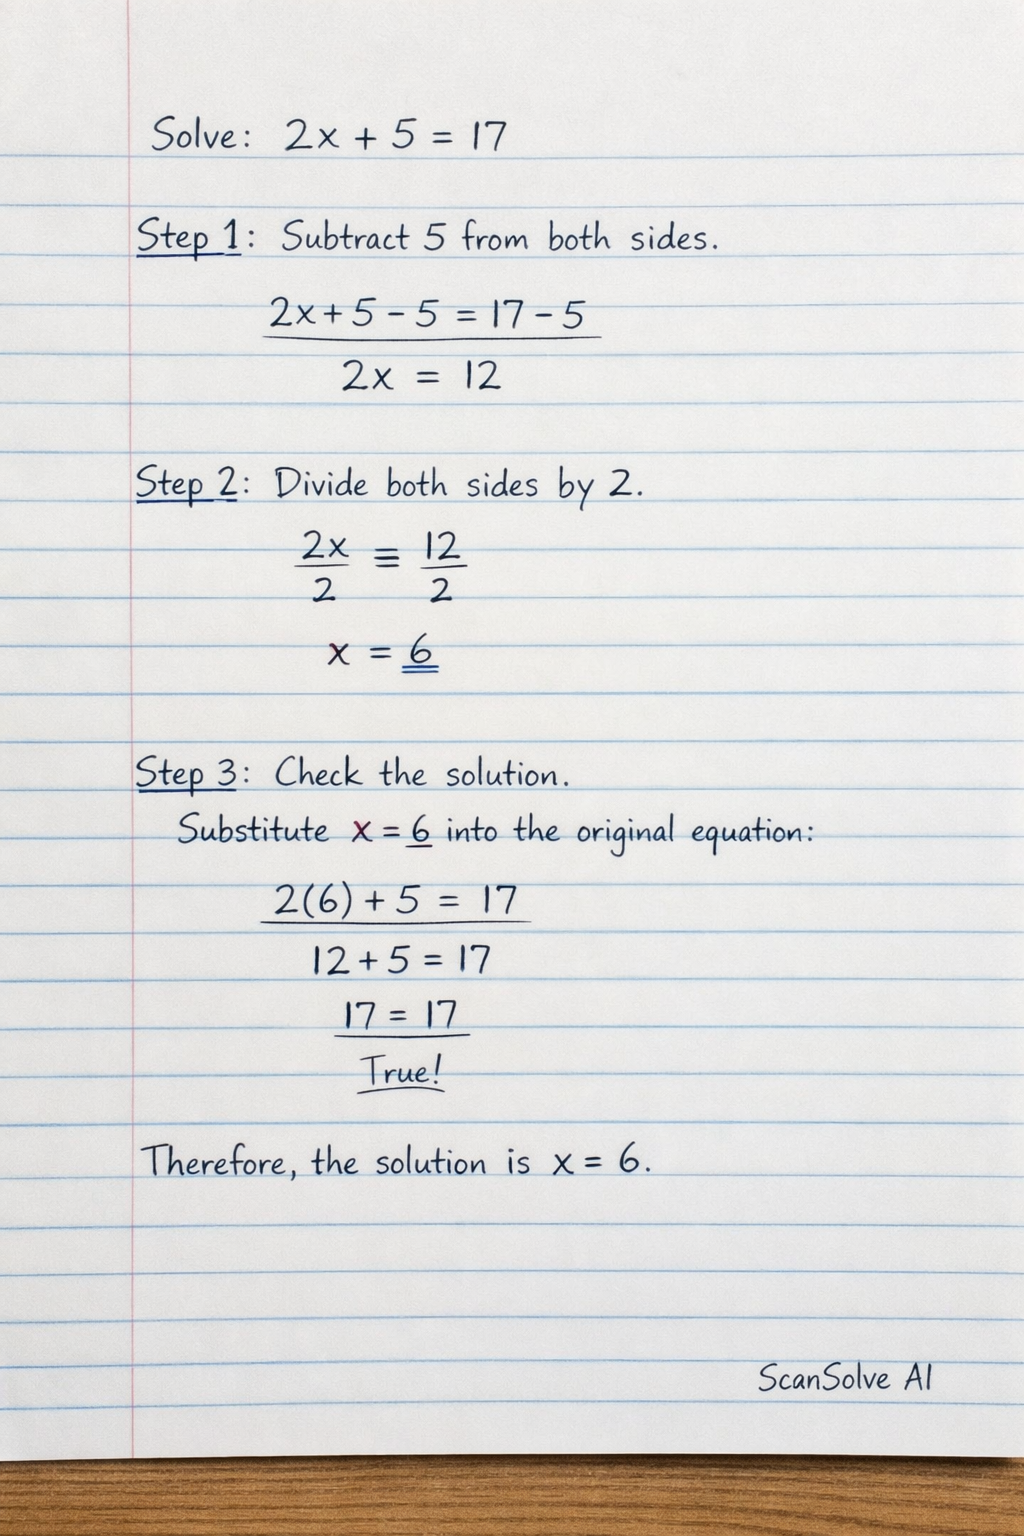 Solve: 2x + 5 = 17
Step 1: Subtract 5 from both sides.
2x + 5 - 5 = 17 - 5
2x = 12
Step 2: Divide both sides by 2.
2x/2 ≡ 12/2
x = 6
Step 3: Check the solution.
Substitute x = 6 into the original equation:
2(6) + 5 = 17
12 + 5 = 17
17 = 17
True!
Therefore, the solution is x = 6.
ScanSolve AI